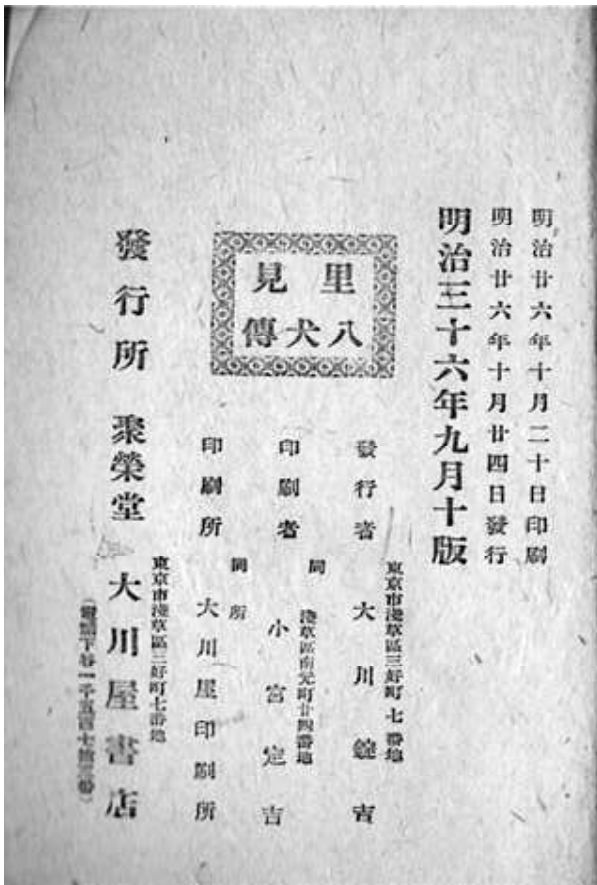 明治廿六年十月二十日印刷
明治廿六年十月廿四日發行
明治三十六年九月十版
里見
八犬傳
東京市淺草區三好町七番地
發行者 大川錠吉
同 淺草區南元町廿四番地
印刷者 小宮定吉
同所
印刷所 大川屋印刷所
東京市淺草區三好町七番地
發行所 聚榮堂 大川屋書店
(電話下谷一千五百七拾三番)